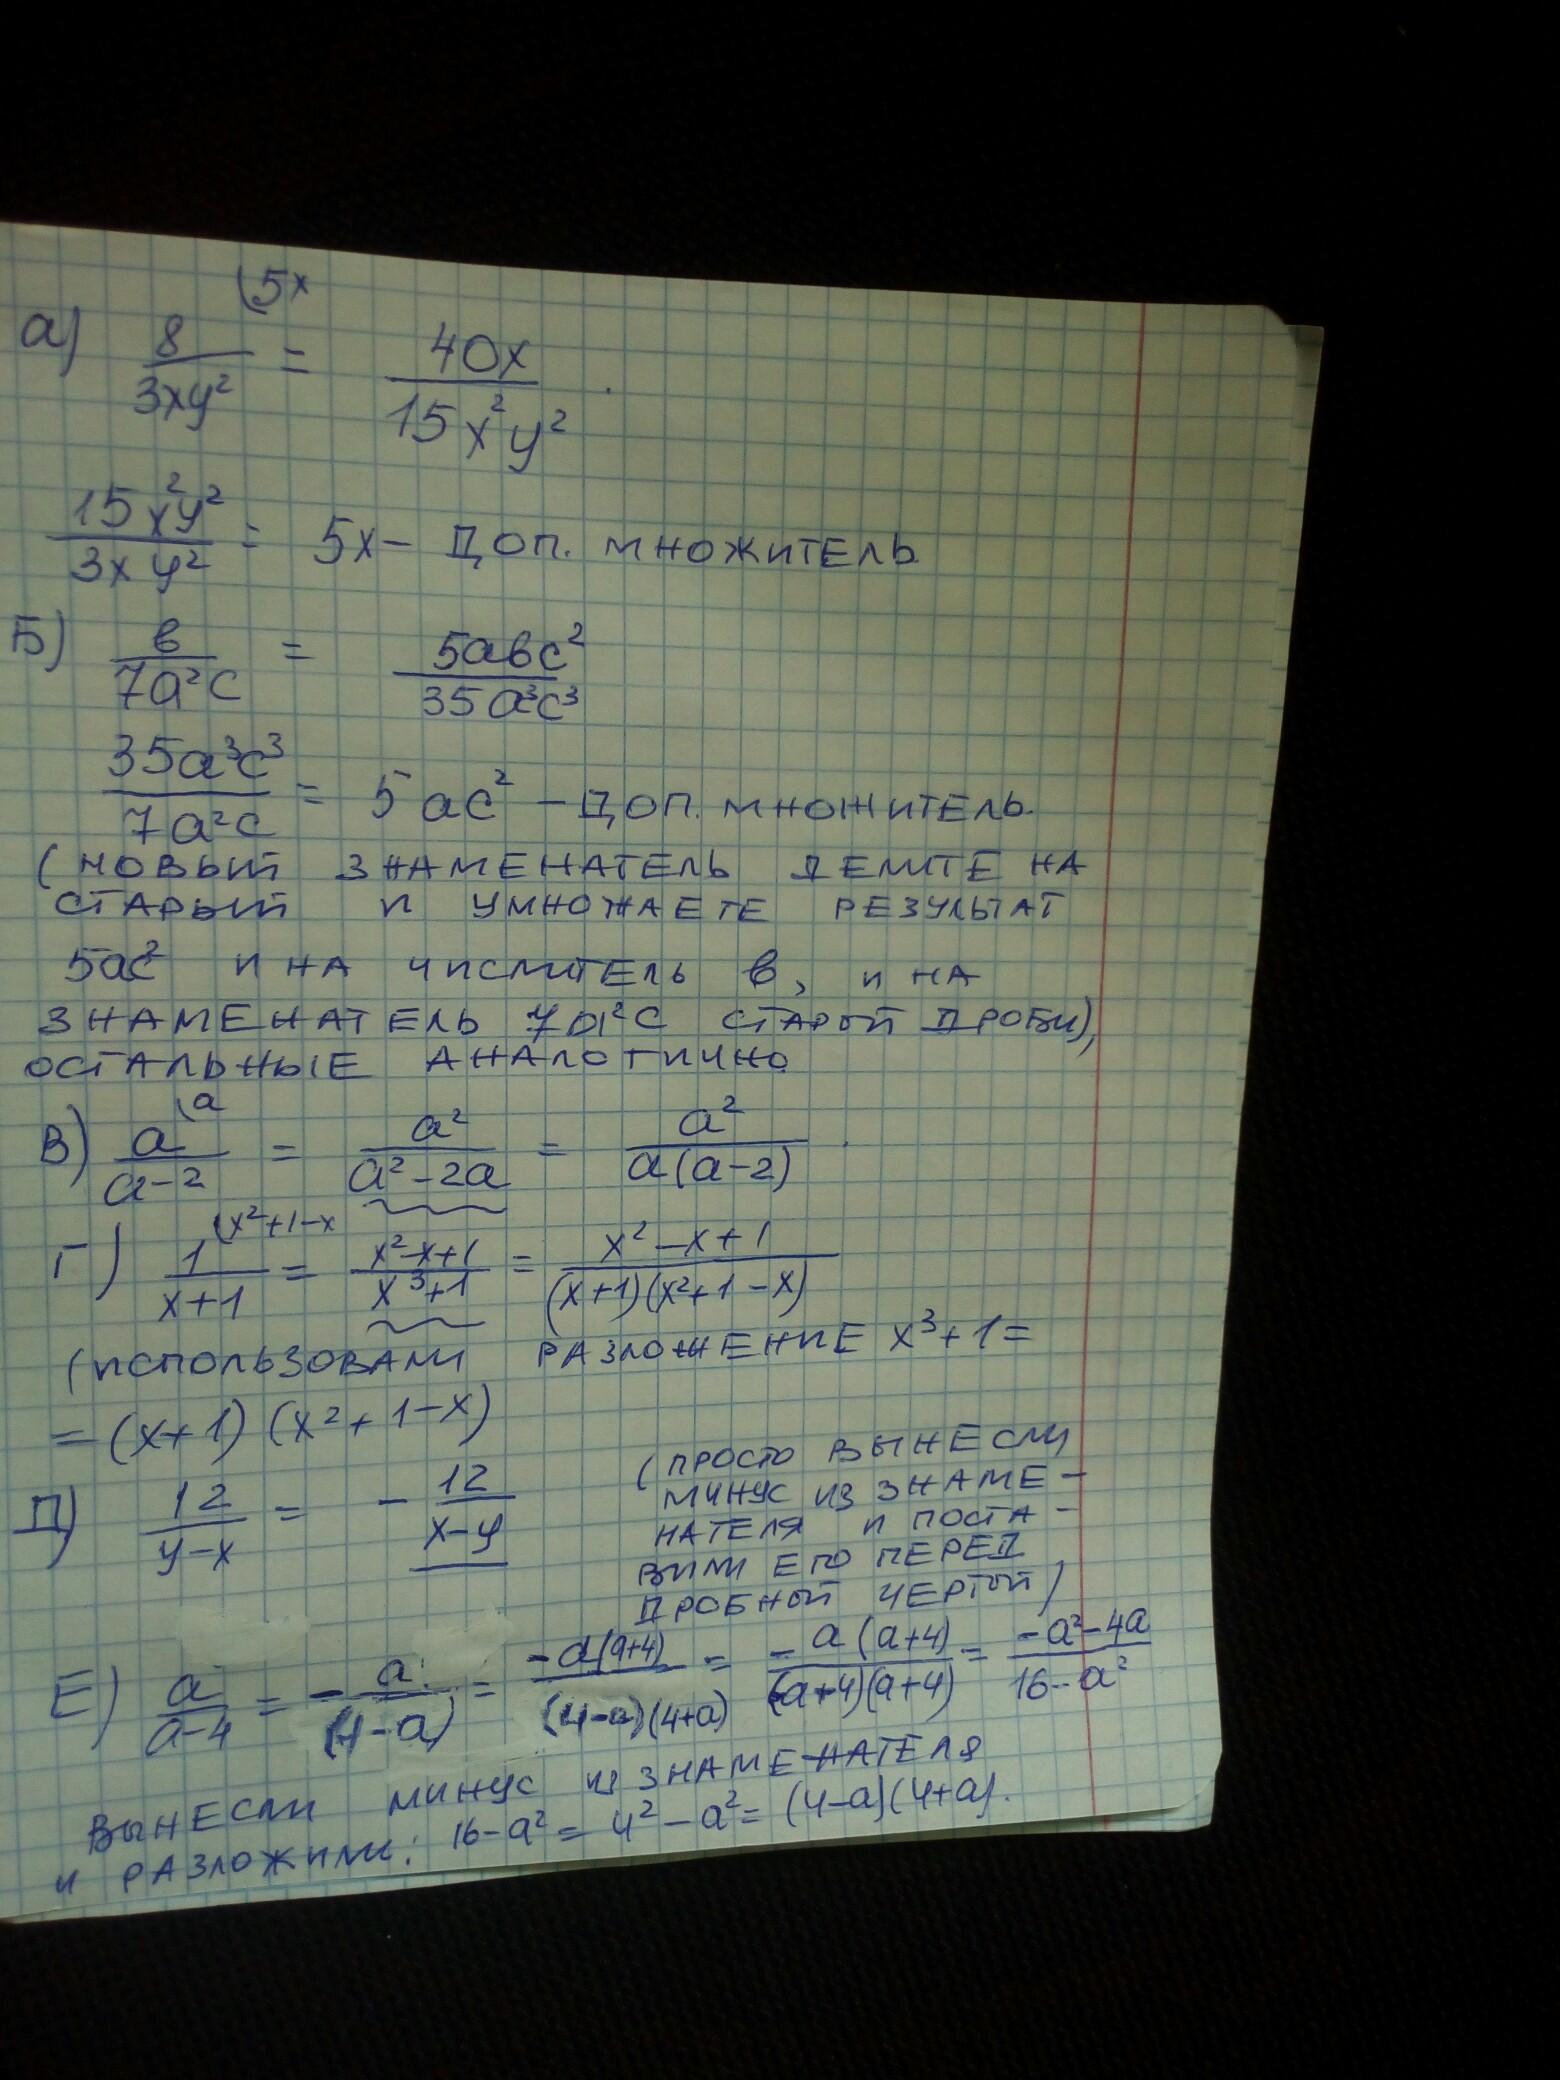 (5x
а) 8/3xy² = 40x/15x²y².
15x²y²/3xy² = 5x – ДОП. МНОЖИТЕЛЬ
Б) в/7a²c = 5aвc²/35a³c³
35a³c³/7a²c = 5ac² – ДОП. МНОЖИТЕЛЬ.
(НОВЫЙ ЗНАМЕНАТЕЛЬ ДЕЛИТЕ НА
СТАРЫЙ И УМНОЖАЕТЕ РЕЗУЛЬТАТ
5ac² И НА ЧИСЛИТЕЛЬ в, И НА
ЗНАМЕНАТЕЛЬ 7a²c СТАРОЙ ДРОБИ),
ОСТАЛЬНЫЕ АНАЛОГИЧНО
(a
В) a/a-2 = a²/a²-2a = a²/a(a-2).
(x²+1-x
Г) 1/x+1 = x²-x+1/x³+1 = x²-x+1/(x+1)(x²+1-x)
(ИСПОЛЬЗОВАЛИ РАЗЛОЖЕНИЕ x³+1=
=(x+1)(x²+1-x)
Д) 12/y-x = - 12/x-y
(ПРОСТО ВЫНЕСЛИ
МИНУС ИЗ ЗНАМЕ-
НАТЕЛЯ И ПОСТА-
ВИЛИ ЕГО ПЕРЕД
ДРОБНОЙ ЧЕРТОЙ)
Е) a/a-4 = - a/(4-a) = -a(a+4)/(4-a)(4+a) = -a(a+4)/(-a+4)(a+4) = -a²-4a/16-a²
ВЫНЕСЛИ МИНУС ИЗ ЗНАМЕНАТЕЛЯ
И РАЗЛОЖИЛИ: 16-a² = 4²-a² = (4-a)(4+a).